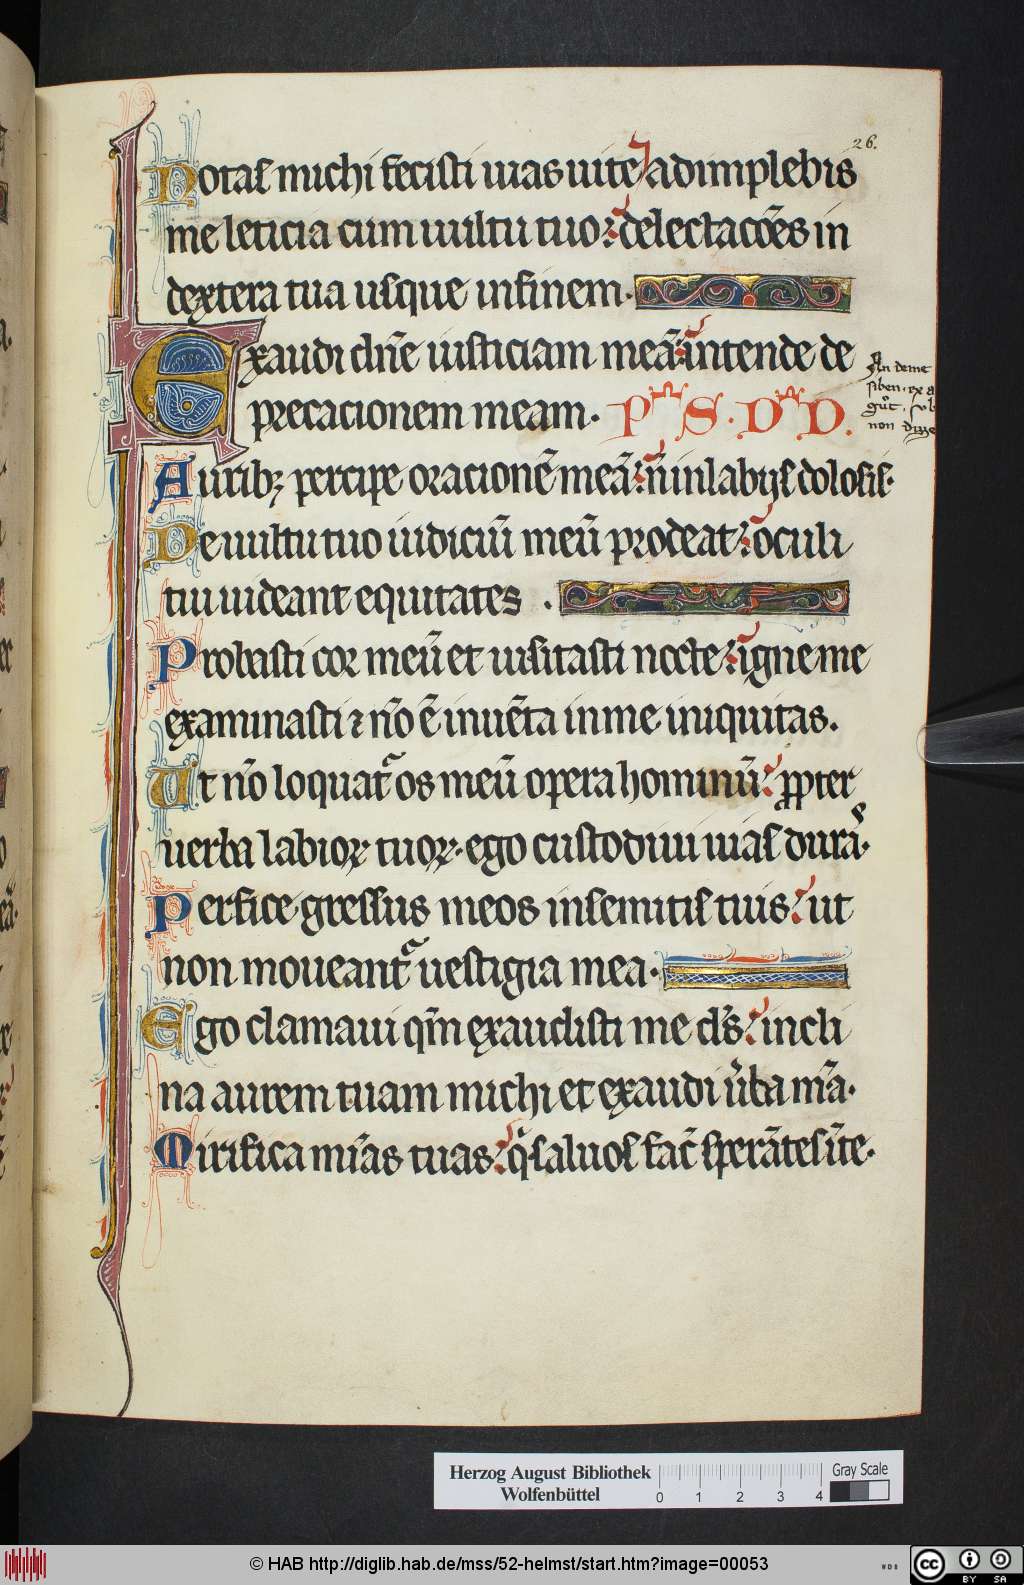 26.
Notas michi fecisti uias uite adimplebis
me leticia cum uultu tuo: delectacōēs in
dextera tua usque infinem.
Exaudi dn̄e iusticiam meā: intende de
precacionem meam. Pm̄S. Dn̄D.
Aurib; percipe oracionē meā: n̄ in labijs dolosis.
De uultu tuo iudiciū meū prodeat: oculi
tui uideant equitates.
Probasti cor meū et uisitasti nocte: igne me
examinasti ⁊ nō ē inuēta in me iniquitas.
Ut nō loquat᷑ os meū opera hominū: ꝓpter
uerba labioꝝ tuoꝝ. ego custodiui uias duras.
Perfice gressus meos in semitis tuis: ut
non moueant᷑ uestigia mea.
Ego clamaui qm̄ exaudisti me ds̄: incli
na aurem tuam michi et exaudi ūba m̄a.
Mirifica mīas tuas: q̄ saluos fac̄ sperātes ī te.
Herzog August Bibliothek
Wolfenbüttel
0 1 2 3 4
Gray Scale
© HAB http://diglib.hab.de/mss/52-helmst/start.htm?image=00053
WDB
CC BY SA